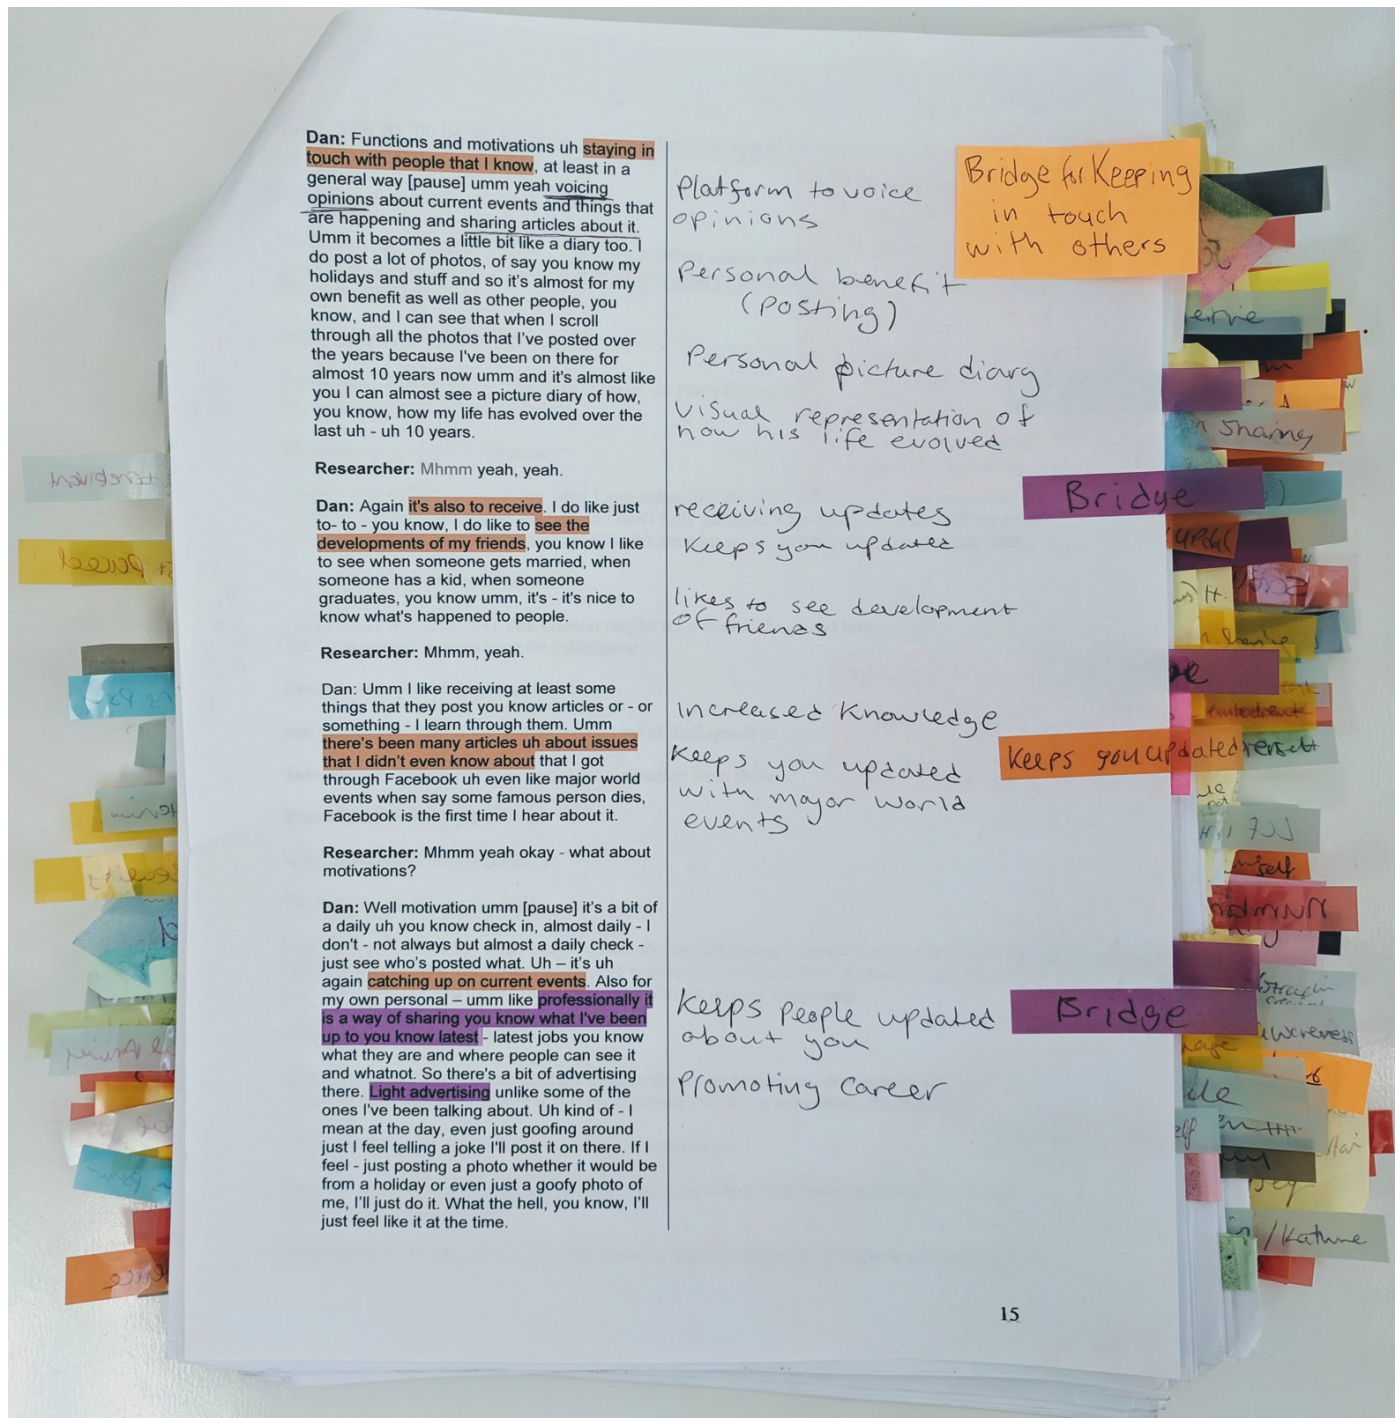 Dan: Functions and motivations uh staying in
touch with people that I know, at least in a
general way [pause] umm yeah voicing
opinions about current events and things that
are happening and sharing articles about it.
Umm it becomes a little bit like a diary too. I
do post a lot of photos, of say you know my
holidays and stuff and so it's almost for my
own benefit as well as other people, you
know, and I can see that when I scroll
through all the photos that I've posted over
the years because I've been on there for
almost 10 years now umm and it's almost like
you I can almost see a picture diary of how,
you know, how my life has evolved over the
last uh - uh 10 years.
Researcher: Mhmm yeah, yeah.
Dan: Again it's also to receive. I do like just
to- to - you know, I do like to see the
developments of my friends, you know I like
to see when someone gets married, when
someone has a kid, when someone
graduates, you know umm, it's - it's nice to
know what's happened to people.
Researcher: Mhmm, yeah.
Dan: Umm I like receiving at least some
things that they post you know articles or - or
something - I learn through them. Umm
there's been many articles uh about issues
that I didn't even know about that I got
through Facebook uh even like major world
events when say some famous person dies,
Facebook is the first time I hear about it.
Researcher: Mhmm yeah okay - what about
motivations?
Dan: Well motivation umm [pause] it's a bit of
a daily uh you know check in, almost daily - I
don't - not always but almost a daily check -
just see who's posted what. Uh – it's uh
again catching up on current events. Also for
my own personal – umm like professionally it
is a way of sharing you know what I've been
up to you know latest - latest jobs you know
what they are and where people can see it
and whatnot. So there's a bit of advertising
there. Light advertising unlike some of the
ones I've been talking about. Uh kind of - I
mean at the day, even just goofing around
just I feel telling a joke I'll post it on there. If I
feel - just posting a photo whether it would be
from a holiday or even just a goofy photo of
me, I'll just do it. What the hell, you know, I'll
just feel like it at the time.
Platform to voice
opinions
Personal benefit
(posting)
Personal picture diary
visual representation of
how his life evolved
receiving updates
keeps you updated
likes to see development
of friends
increased knowledge
Keeps you updated
with major world
events
keeps people updated
about you
Promoting career
Bridge for Keeping
in touch
with others
Bridge
Keeps you updated
Bridge
15
Sharing